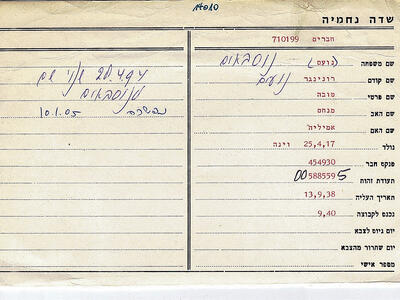 14010
שדה נחמיה
חברים 710199
שם משפחה (נועם) נוסבאום
שם קודם רונינגר נועם
שם פרטי טובה
שם האב מנחם
שם האם אמיליה'
נולד 25,4,17 וינה
פנקס חבר 454930
תעודת זהות 005885595
תאריך העליה 13,9,38
נכנס לקבוצה 9,40
יום גיוס לצבא
יום שחרור מהצבא
מספר אישי
20.4.94 שינוי שם
נוסבאום
נפטרה 10.1.05